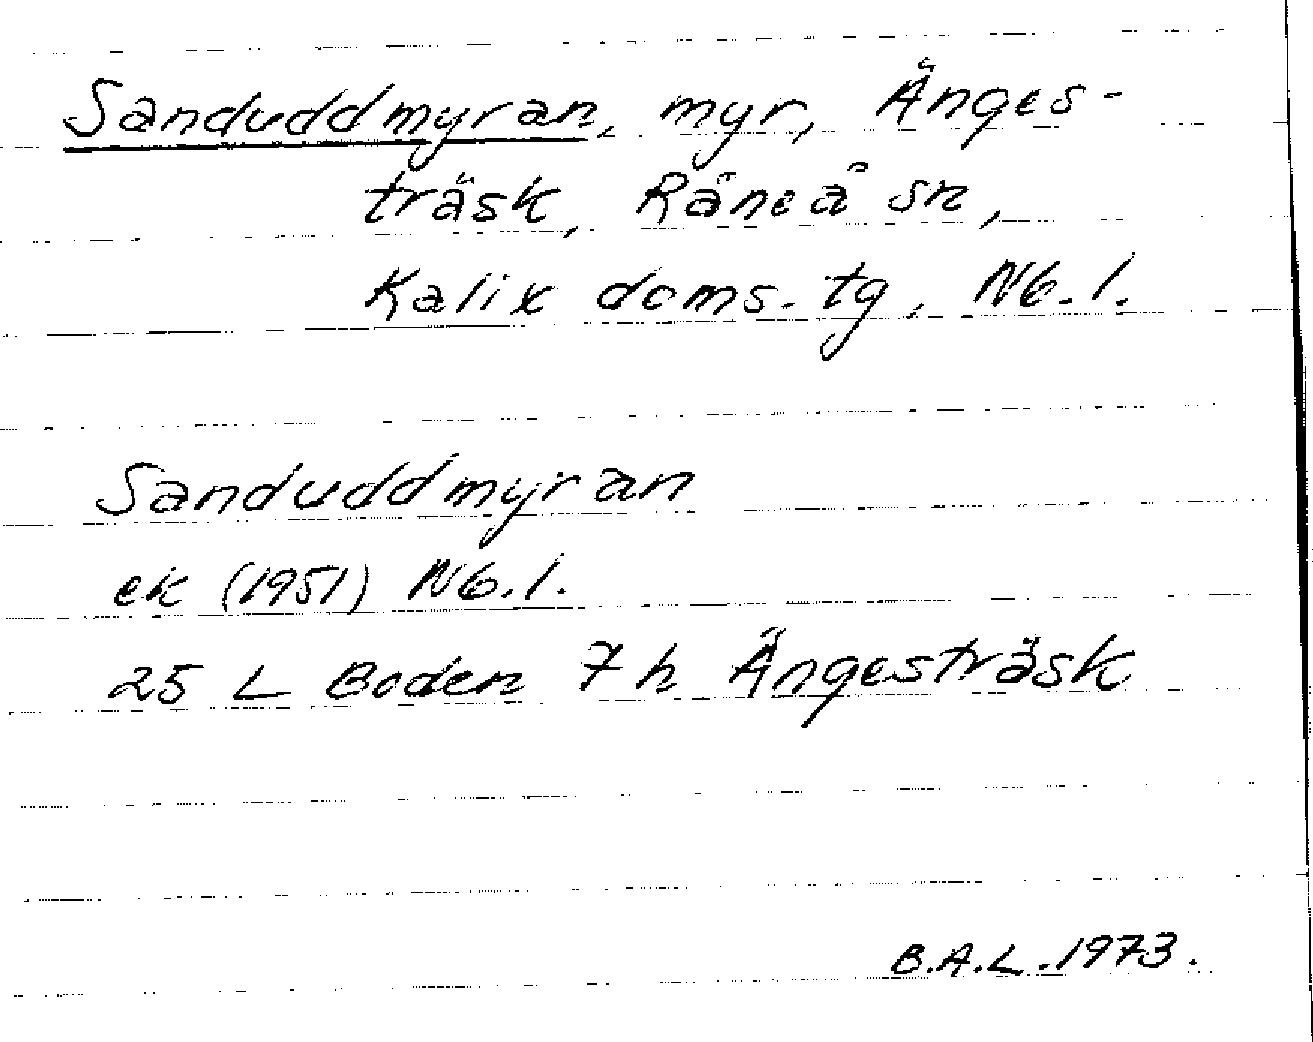 Sanduddmyran, myr, Änges-
träsk, Råneå sn,
Kalix doms. tg, Nb. l.
Sanduddmyran
ek (1951) Nb. l.
25 L Boden 7 h Ängesträsk
B.A.L. 1973.